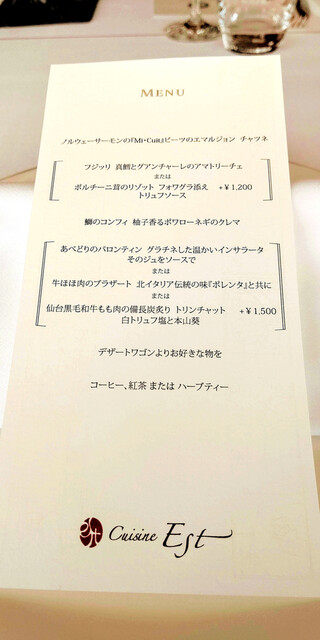 MENU
ノルウェーサーモンの『Mi-Cuit』ビーツのエマルジョン チャツネ
フジッリ 真鱈とグアンチャーレのアマトリーチェ
または
ポルチーニ茸のリゾット フォワグラ添え +￥1,200
トリュフソース
鰤のコンフィ 柚子香るポワローネギのクレマ
あべどりのバロンティン グラチネした温かいインサラータ
そのジュをソースで
または
牛ほほ肉のブラザート 北イタリア伝統の味『ポレンタ』と共に
または
仙台黒毛和牛もも肉の備長炭炙り トリンチャット +￥1,500
白トリュフ塩と本山葵
デザートワゴンよりお好きな物を
コーヒー、紅茶 または ハーブティー
est Cuisine Est